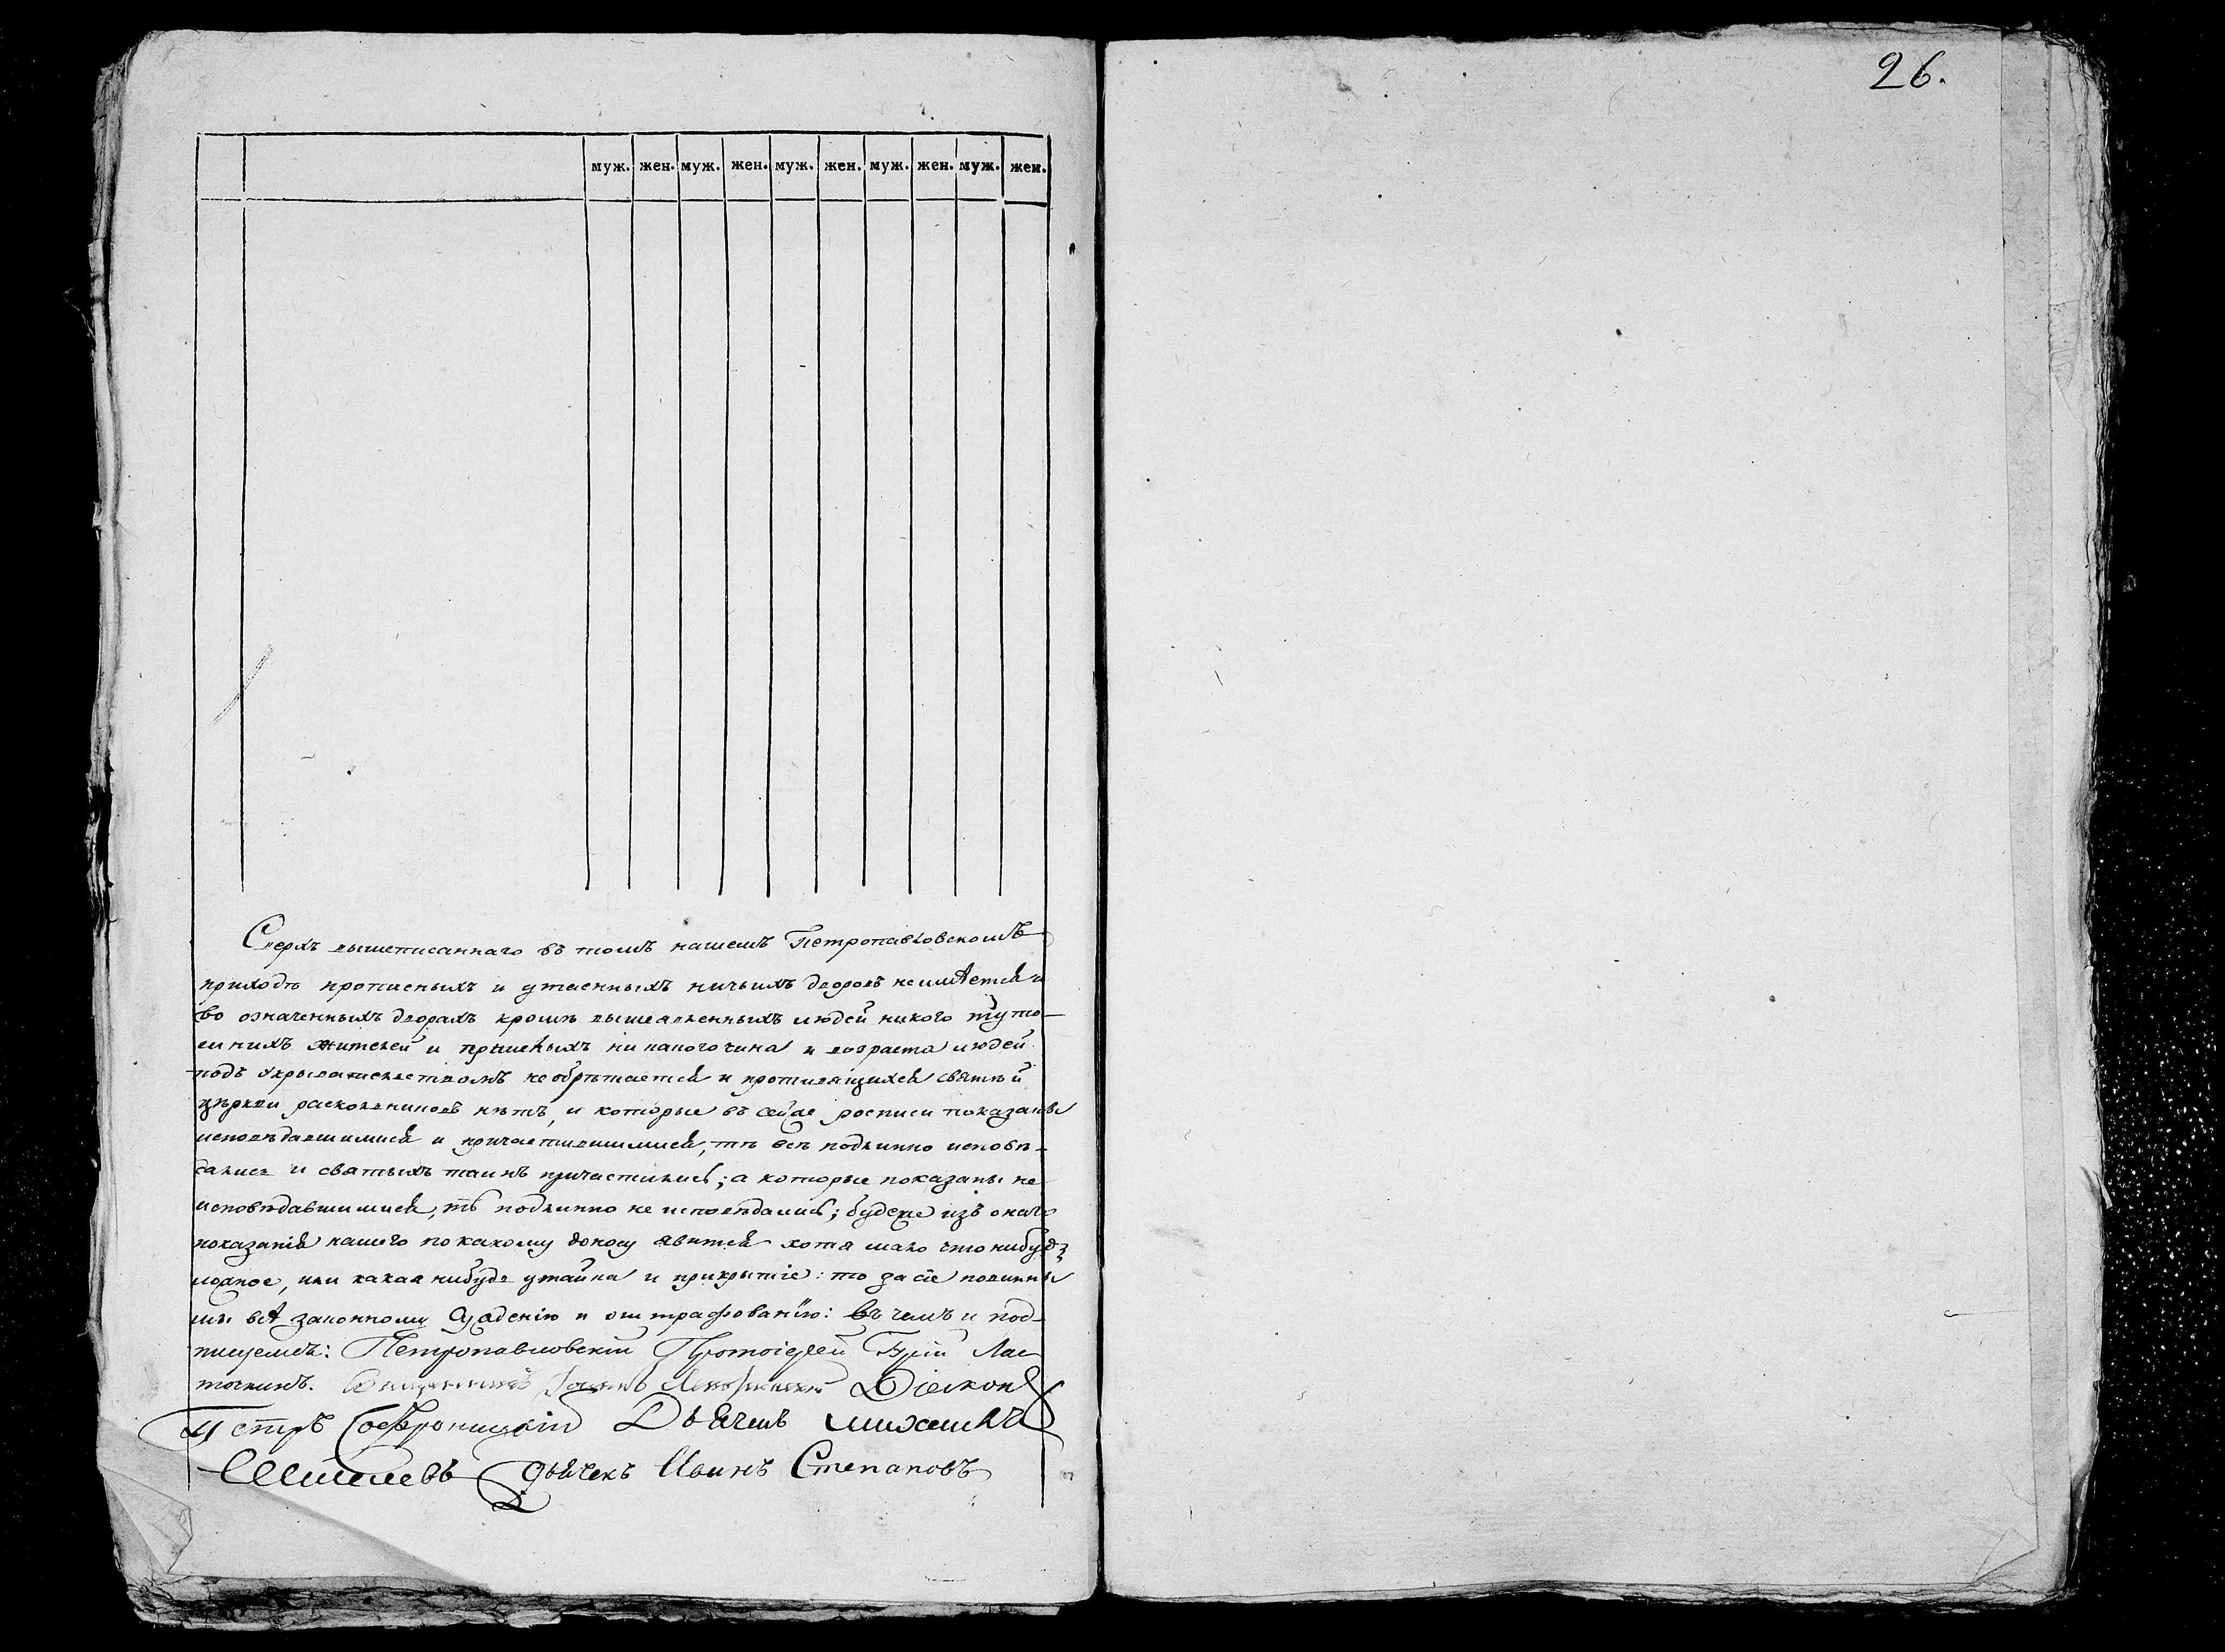 26.
муж. жен. муж. жен. муж. жен. муж. жен. муж. жен.
Сверхъ вышеписаннаго въ томъ нашемъ Петропавловскомъ
приходѣ прописныхъ и утаенныхъ ничьихъ дворовъ неимѣется и
во означенныхъ дворахъ кромѣ вышеявленныхъ людей никого туто-
шнихъ жителей и пришлыхъ ни какого чина и возраста людей
подъ укрывательствомъ не обрѣтается и противящихся святѣй
цѣркви раскольниковъ нѣтъ, и которые въ сей же росписи показаны
исповѣдавшимися и причастившимися, тѣ всѣ подлинно исповѣ-
дались и святыхъ таинъ причастились; а которые показаны не
исповѣдавшимися, тѣ подлинно не исповѣдались; будеже изъ онаго
показанія нашего по какому доносу явится хотя мало что нибудь
ложное, или какая нибудь утайка и прикрытіе: то за сіе повинны
мы всѣ законному сужденію и оштрафованію: въ чемъ и под-
писуемся: Петропавловскій Протоіерей Лас
точкинъ. Священникъ Іоаннъ Діакон
Петръ Софроницкій Дьячекъ Михаилъ
дьячекъ Иванъ Степановъ